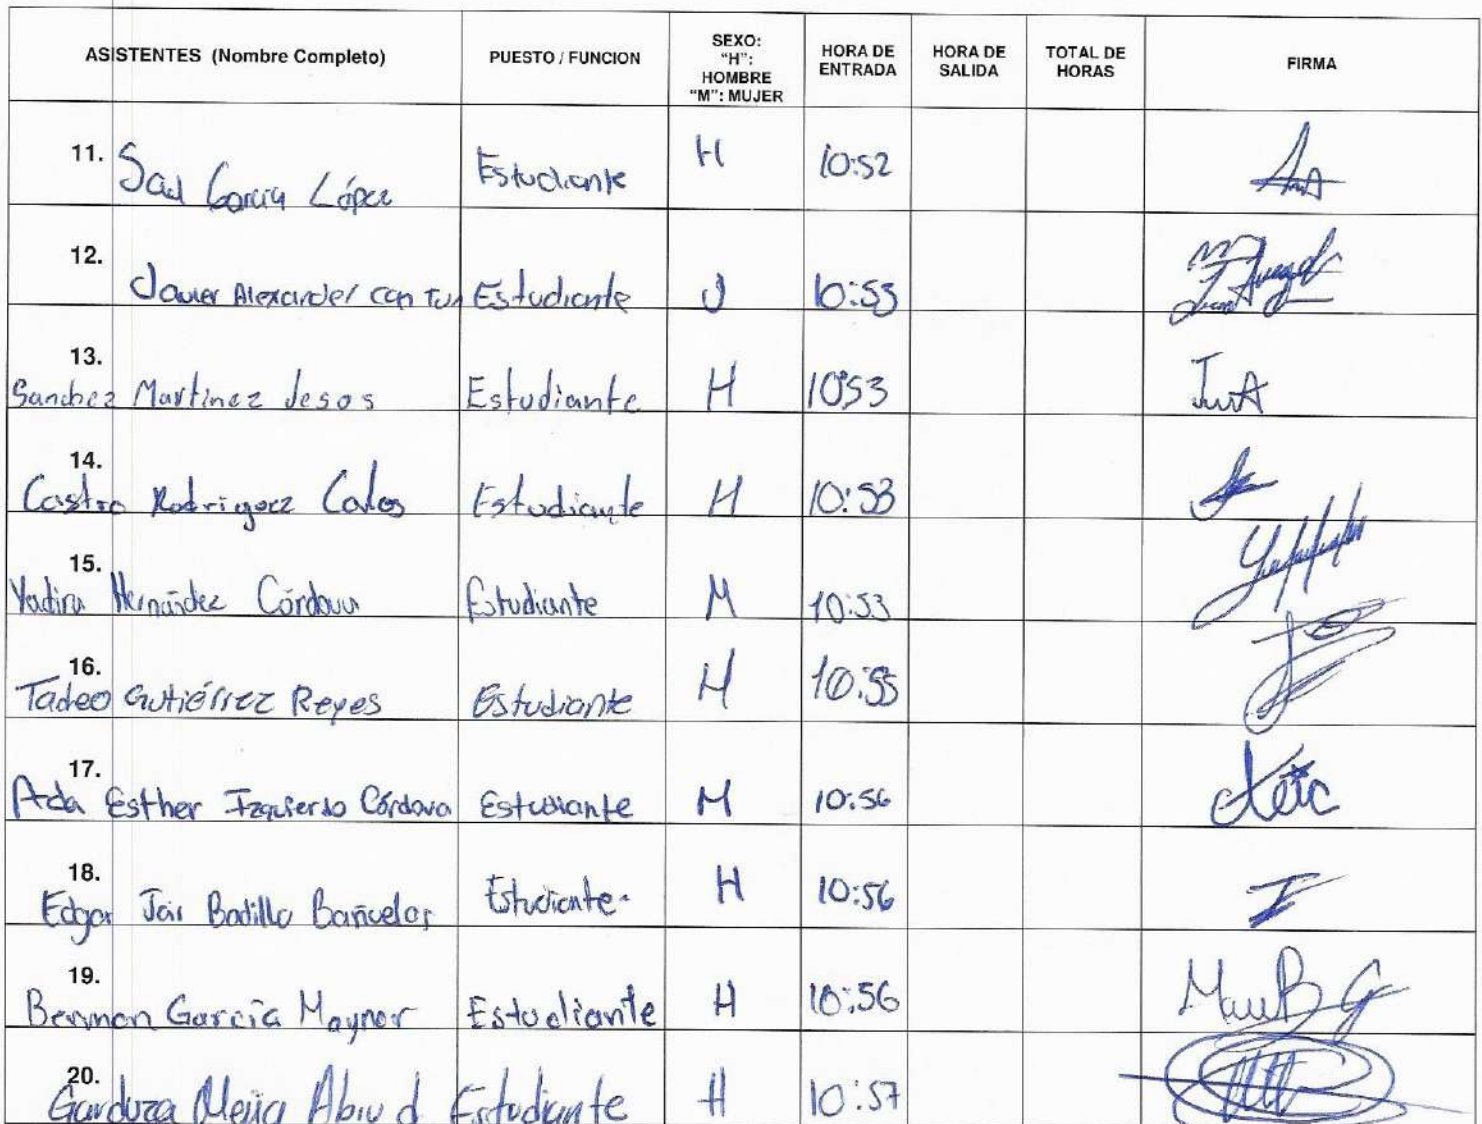 ASISTENTES (Nombre Completo) PUESTO / FUNCION SEXO: "H": HOMBRE "M": MUJER HORA DE ENTRADA HORA DE SALIDA TOTAL DE HORAS FIRMA
11. Saul García López Estudiante H 10:52
12. Javier Alexander Can Tun Estudiante J 10:53
13. Sanchez Martinez Jesos Estudiante H 10:53
14. Castro Rodriguez Carlos Estudiante H 10:53
15. Yadira Hernández Córdova Estudiante M 10:53
16. Tadeo Gutiérrez Reyes Estudiante H 10:55
17. Ada Esther Izquierdo Córdova Estudiante M 10:56
18. Edgar Jair Badillo Bañuelos Estudiante. H 10:56
19. García Maynor Estudiante H 10:56
20. Garduza Mejia Abiud Estudiante H 10:57